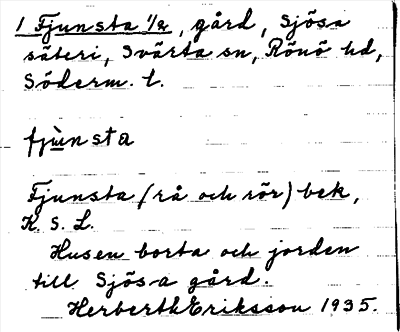 1 Fjunsta 1/2, gård, Sjösa
säteri, Svärta sn, Rönö hd,
Söderm. l.
fjùnsta
Fjunsta (rå och rör) bek,
K. S. L.
Husen borta och jorden
till Sjösa gård.
Herberth Eriksson 1935.